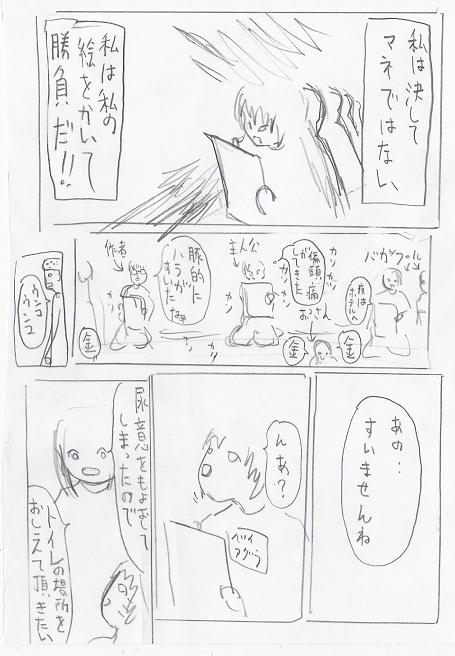 私は決して
マネではない
私は私の
絵をかいて
勝負だ!!
バカップル
夜は
ホテルへ
カンカン
偏頭痛
がし
てきた
おっさん
金
金
主人公
カンカン
豚的に
ハラが
すいた
なぁ
作者
カン
カッ
金
ウンコ
ウンコ
あの…
すいませんね
んあ?
バイ
アグラ
尿意をもよおして
しまったので
トイレの場所を
おしえて頂きたい